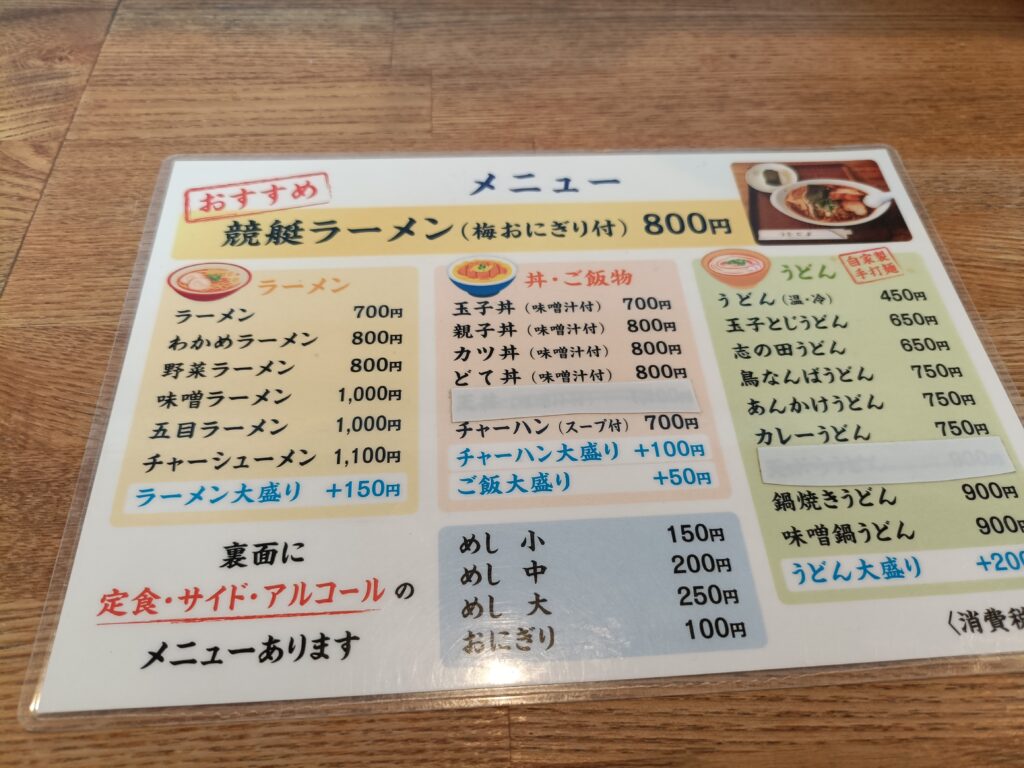 おすすめ
メニュー
競艇ラーメン（梅おにぎり付） 800円
ラーメン
ラーメン 700円
わかめラーメン 800円
野菜ラーメン 800円
味噌ラーメン 1,000円
五目ラーメン 1,000円
チャーシューメン 1,100円
ラーメン大盛り +150円
丼・ご飯物
玉子丼（味噌汁付） 700円
親子丼（味噌汁付） 800円
カツ丼（味噌汁付） 800円
どて丼（味噌汁付） 800円
チャーハン（スープ付） 700円
チャーハン大盛り +100円
ご飯大盛り +50円
うどん
自家製
手打麺
うどん（温・冷） 450円
玉子とじうどん 650円
志の田うどん 650円
鳥なんばうどん 750円
あんかけうどん 750円
カレーうどん 750円
鍋焼きうどん 900円
味噌鍋うどん 900円
うどん大盛り +200
めし 小 150円
めし 中 200円
めし 大 250円
おにぎり 100円
裏面に
定食・サイド・アルコールの
メニューあります
〈消費税